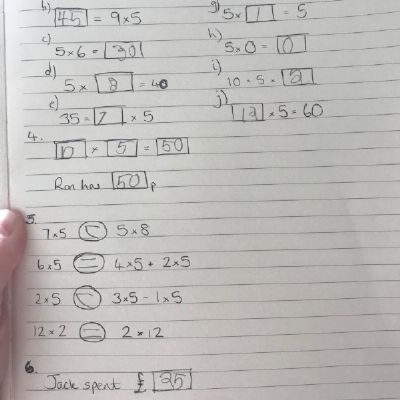 b) 45 = 9×5
c) 5×6 = 30
d) 5× 8 = 40
e) 35 = 7 × 5
g) 5× 1 = 5
h) 5×0 = 0
i) 10 = 5 × 2
j) 12 × 5 = 60
4.
10 × 5 = 50
Ron has 50 p
5.
7×5 < 5×8
6×5 = 4×5 + 2×5
2×5 < 3×5 - 1×5
12×2 = 2×12
6.
Jack spent £ 25